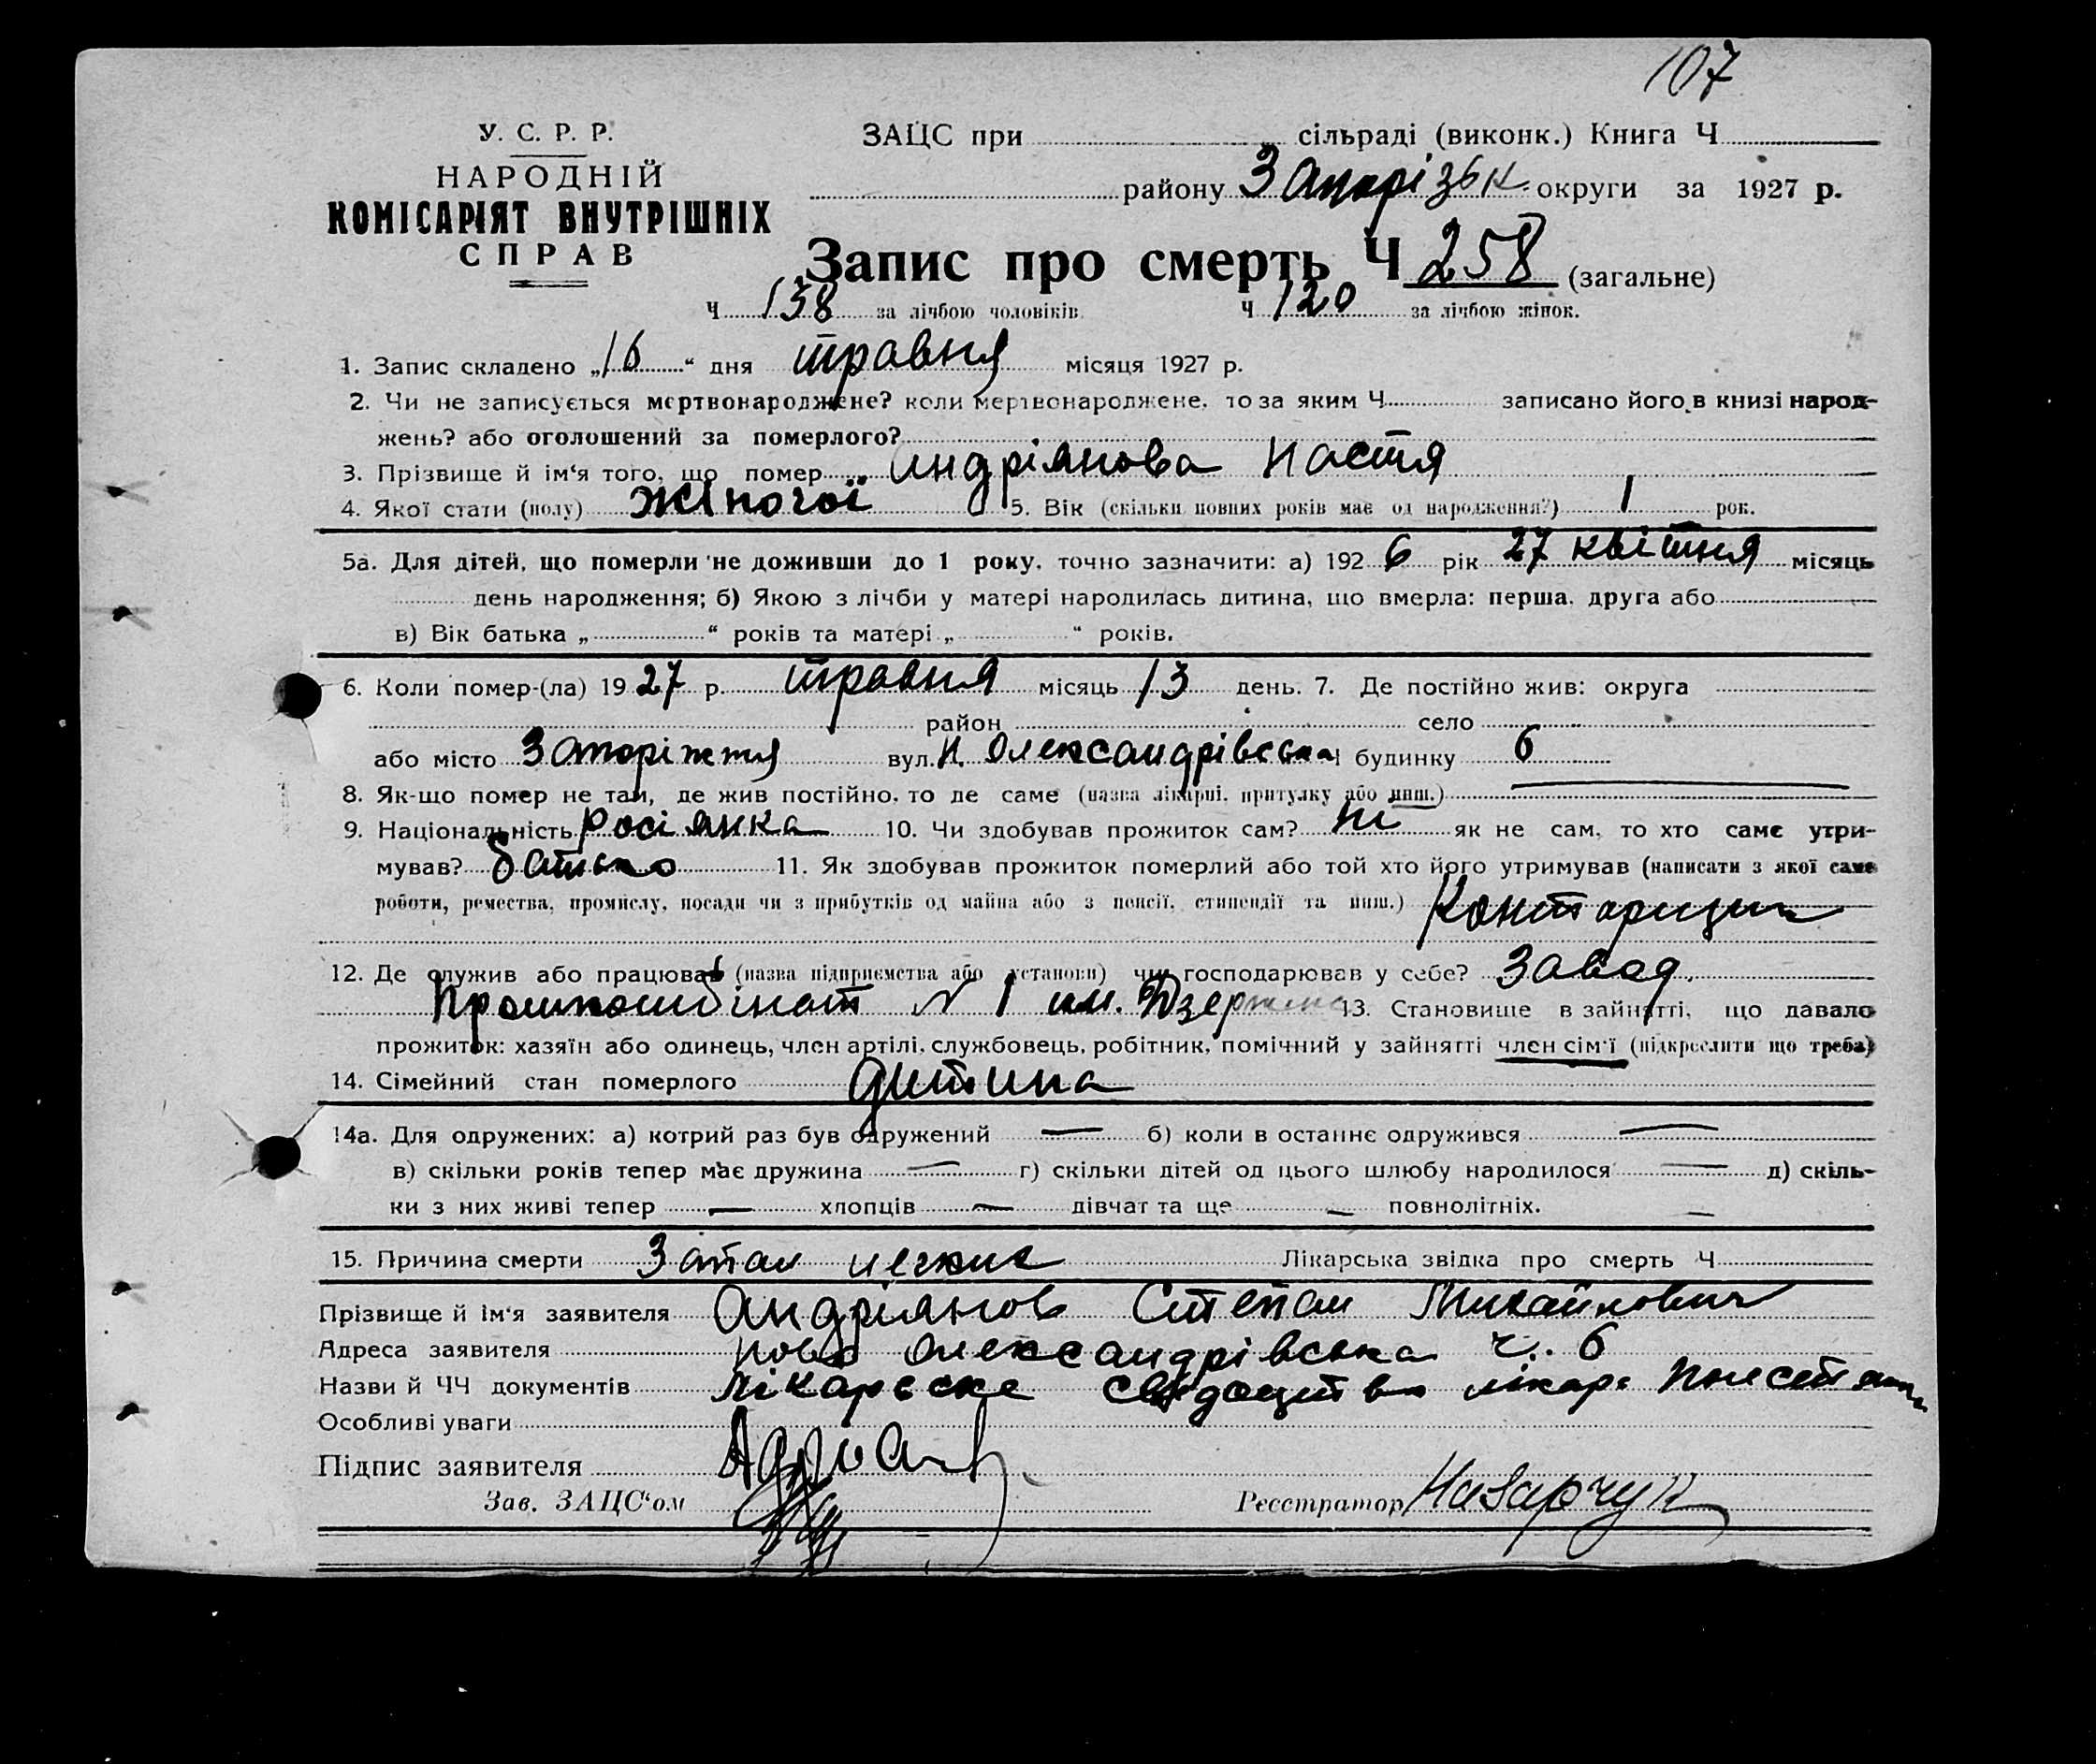 107
У. С. Р. Р.
НАРОДНІЙ
КОМІСАРІЯТ ВНУТРІШНІХ
СПРАВ
ЗАЦС при сільраді (виконк.) Книга Ч
району Запорізьк. округи за 1927 р.
Запис про смерть Ч 258 (загальне)
Ч 138 за лічбою чоловіків. Ч 120 за лічбою жінок.
1. Запис складено „16“ дня травня місяця 1927 р.
2. Чи не записується мертвонароджене? коли мертвонароджене, то за яким Ч записано його в книзі народ-
жень? або оголошений за померлого?
3. Прізвище й ім‘я того, що помер Андріянова Настя
4. Якої стати (полу) жіночої 5. Вік (скільки повних років має од народження?) 1 рок.
5а. Для дітей, що померли не доживши до 1 року, точно зазначити: а) 1926 рік 27 квітня місяць
день народження; б) Якою з лічби у матері народилась дитина, що вмерла: перша, друга або
в) Вік батька „ “ років та матері „ “ років.
6. Коли помер-(ла) 1927 р. травня місяць 13 день. 7. Де постійно жив: округа
район село
або місто Запоріжжя вул. Н. Олександрівська будинку 6
8. Як-що помер не там, де жив постійно, то де саме (назва лікарні, притулку або инш.)
9. Національність росіянка 10. Чи здобував прожиток сам? ні як не сам, то хто саме утри-
мував? батько 11. Як здобував прожиток померлий або той хто його утримував (написати з якої саме
роботи, ремества, промислу, посади чи з прибутків од майна або з пенсії, стипендії та инш.) Контарщик
12. Де служив або працював (назва підприємства або установи) чи господарював у себе? Завод
Промкомбінат № 1 им. Дзержинс 13. Становище в зайнятті, що давало
прожиток: хазяїн або одинець, член артілі, службовець, робітник, помічний у зайнятті член сім‘ї (підкреслити що треба)
14. Сімейний стан померлого дитина
14а. Для одружених: а) котрий раз був одружений — б) коли в останнє одружився —
в) скільки років тепер має дружина — г) скільки дітей од цього шлюбу народилося — д) скіль-
ки з них живі тепер — хлопців — дівчат та ще — повнолітніх. —
15. Причина смерти Запал легких Лікарська звідка про смерть Ч
Прізвище й ім‘я заявителя Андріянов Степан Михайлович
Адреса заявителя Ново Олександрівська ч. 6
Назви й ЧЧ документів Лікарське свідоцтво лікаря
Особливі уваги
Підпис заявителя
Зав. ЗАЦС‘ом
Реєстратор Назарчук